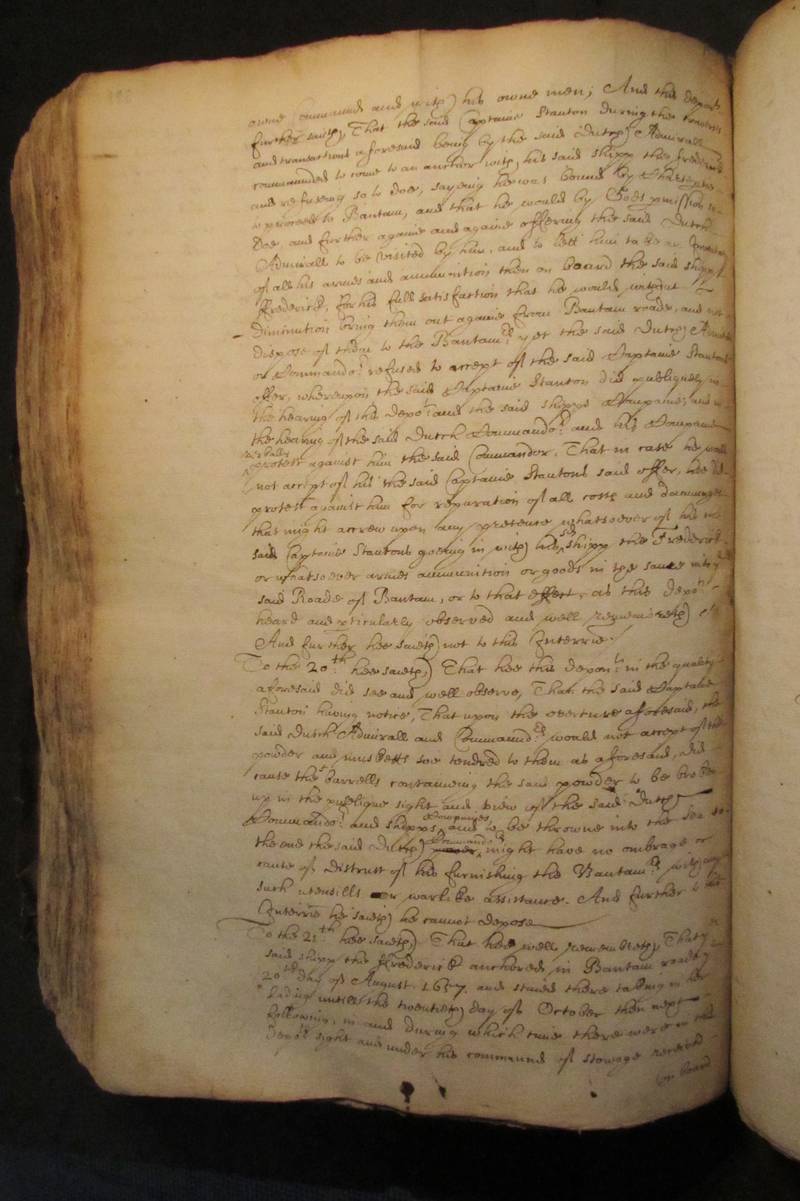 owne Command and with his owne men; And this depont
further saith, That the said Captaine Stanton during the
and transactions aforesaid being by the said Dutch Admirall
commanded to come to an anchor with his said shipp the Frederick
and refuseing so to doe, sayeing he was bound by Charterpartie
to proceed to Bantam, and that he would by Gods permission so
doe, and further againe and againe offering the said Dutch
Admirall to be visited by him, and to lett him take an Inventory
of all his armes and ammunition then on board the said shipp
Frederick, for his full satisfaction that he would without
diminution bring them out againe from Bantam roade, and not
dispose of them to the Bantamrs yet the said Dutch Admirall
or Commandor refused to accept of the said Captaine Stantons
offer, whereupon the said Captaine Stanton did publiquely in
the hearing of this depont and the said shipps Companie, and in
the hearing of the said Dutch Commandor and his Companie
protest against him the said Commandor, That in case he would
not accept of his the said Captaine Stantons said offer, hee did
protest against him for reparation of all costs and dammages
that might accrew upon any pretence whatsoever of his the
said Captaine Stantons goeing in with his sd shipp the Frederick
or whatsoever armes ammunition or goods in the same into the
said Roade of Bantam, or to that effect, as this depont
heard and perticularly observed and well remembreth
And further hee saith not to this Interrie.
To the 20th hee saith, That hee this depont in the quality
aforesaid did see and well observe, That the said Captaine
Stanton having notice, That upon the overture aforesaid, the
said Dutch Admirall and Commandrs would not accept of the
powder and musketts soe tendred to them as aforesaid, did
cause the barrells containeing the said powder to be broken
up in the publique sight and view of the said Dutch
Commandor and shipps Companyes and to be throwne into the sea so
the one the said Dutch Commandor might have no ombrage or
cause of distrust of his furnishing the Bantamrs with any
such utensills or warlike assistance. And further to this
Interrie he saith he cannot depose
To the 21th hee saith, That hee well remembreth, That the
said shipp the Frederick anchored in Bantam roade the
20th day of August 1657 and staied there taking in her
lading untill the twentieth day of October then next
following, in and during which time there were in this
depots sight and under his command of stowage received
on board